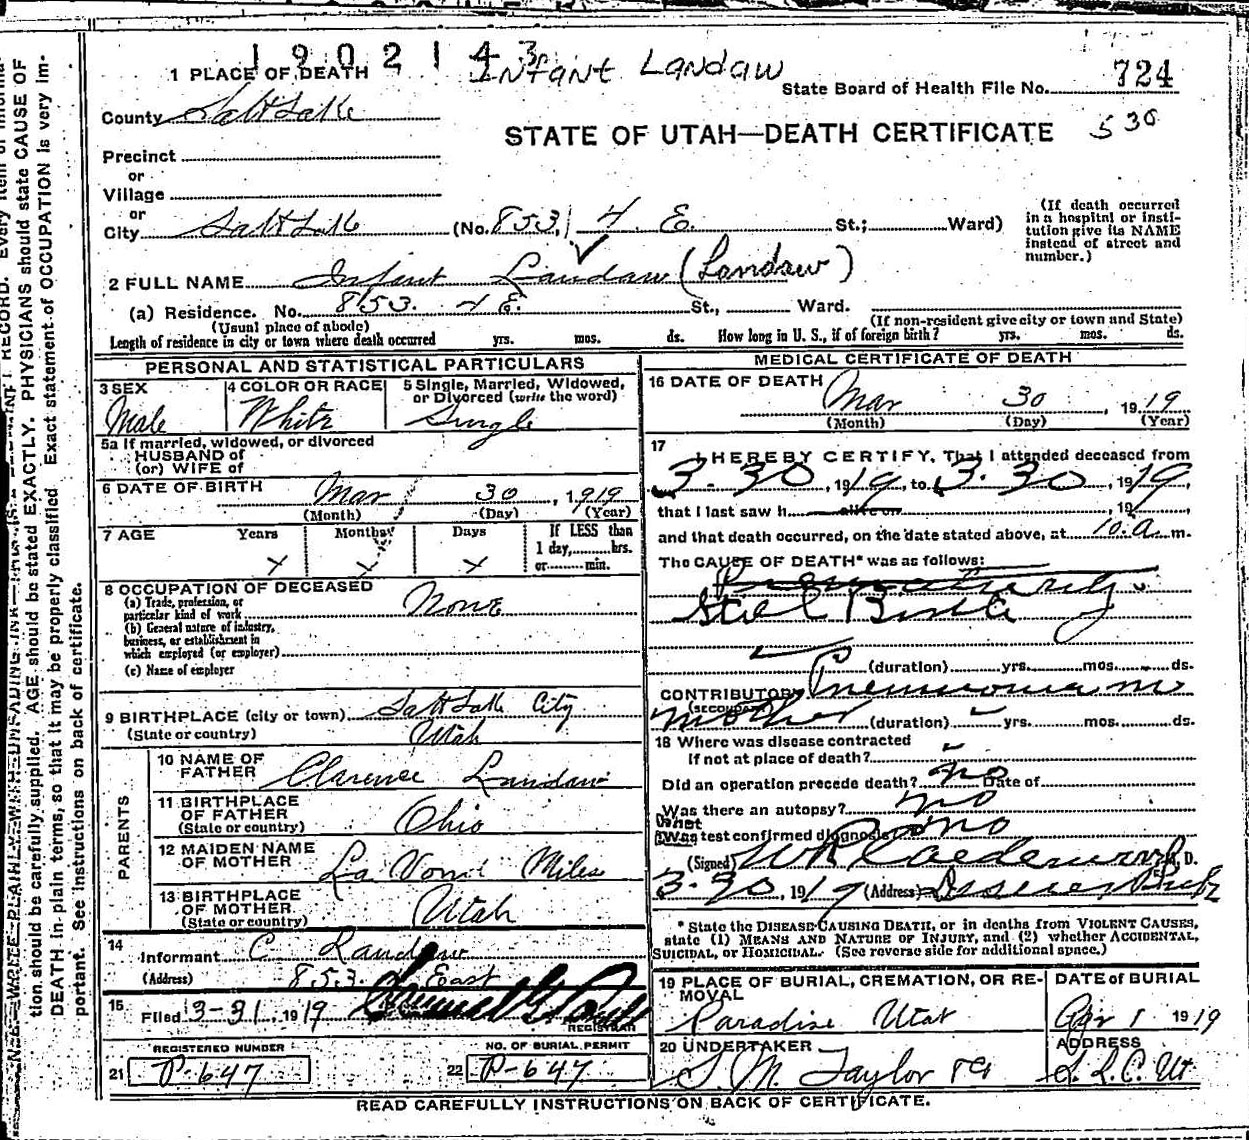 1902143 Infant Landaw
1 PLACE OF DEATH State Board of Health File No. 724
County Salt Lake
STATE OF UTAH—DEATH CERTIFICATE 530
Precinct
or
Village
or
City Salt Lake (No. 853 4 E. St.; Ward)
(If death occurred in a hospital or institution give its NAME instead of street and number.)
2 FULL NAME Infant Landaw (Landaw)
(a) Residence. No. 853. 4 E. St., Ward.
(Usual place of abode) (If non-resident give city or town and State)
Length of residence in city or town where death occurred yrs. mos. ds. How long in U. S., if of foreign birth? yrs. mos. ds.
PERSONAL AND STATISTICAL PARTICULARS
3 SEX 4 COLOR OR RACE 5 Single, Married, Widowed, or Divorced (write the word)
Male White Single
5a If married, widowed, or divorced
HUSBAND of
(or) WIFE of
6 DATE OF BIRTH Mar 30, 1919
(Month) (Day) (Year)
7 AGE Years Months Days If LESS than
1 day,....hrs.
or....min.
8 OCCUPATION OF DECEASED None
(a) Trade, profession, or
particular kind of work
(b) General nature of industry,
business, or establishment in
which employed (or employer)
(c) Name of employer
9 BIRTHPLACE (city or town) Salt Lake City
(State or country) Utah
PARENTS
10 NAME OF FATHER Clarence Landaw
11 BIRTHPLACE OF FATHER (State or country) Ohio
12 MAIDEN NAME OF MOTHER La Voni Miles
13 BIRTHPLACE OF MOTHER (State or country) Utah
14 Informant C Landaw
(Address) 853 4 East
15 Filed 3-31. 1919
REGISTRAR
REGISTERED NUMBER NO. OF BURIAL PERMIT
21 P-647 22 P-647
MEDICAL CERTIFICATE OF DEATH
16 DATE OF DEATH Mar 30, 1919
(Month) (Day) (Year)
17 I HEREBY CERTIFY, That I attended deceased from
3-30, 1919, to 3-30, 1919,
that I last saw h alive on , 19 ,
and that death occurred, on the date stated above, at 10.a m.
The CAUSE OF DEATH* was as follows:
Prematurity
Still Birth
(duration) yrs. mos. ds.
CONTRIBUTORY Pneumonia in
(SECONDARY)
mother (duration) yrs. mos. ds.
18 Where was disease contracted
If not at place of death?
Did an operation precede death? no Date of
Was there an autopsy? no
What
Was test confirmed diagnosis no
(Signed) M. D.
3-30, 1919 (Address)
* State the DISEASE CAUSING DEATH, or in deaths from VIOLENT CAUSES,
state (1) MEANS AND NATURE OF INJURY, and (2) whether ACCIDENTAL,
SUICIDAL, or HOMICIDAL. (See reverse side for additional space.)
19 PLACE OF BURIAL, CREMATION, OR REMOVAL DATE OF BURIAL
Paradise Utah Apr 1 1919
20 UNDERTAKER ADDRESS
S. M. Taylor S. L. C. Ut
READ CAREFULLY INSTRUCTIONS ON BACK OF CERTIFICATE.
tion should be carefully supplied. AGE should be stated EXACTLY. PHYSICIANS should state CAUSE OF
DEATH in plain terms, so that it may be properly classified. Exact statement of OCCUPATION is very im-
portant. See instructions on back of certificate.